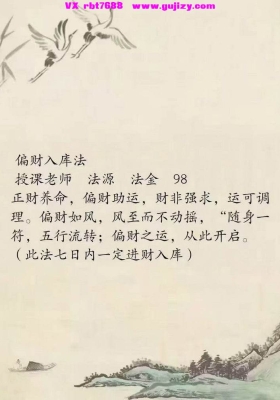 VX rbt7688 www.gujizy.com
偏财入库法
授课老师 法源 法金 98
正财养命，偏财助运，财非强求，运可调
理。偏财如风，风至而不动摇，“随身一
符，五行流转；偏财之运，从此开启。
（此法七日内一定进财入库）